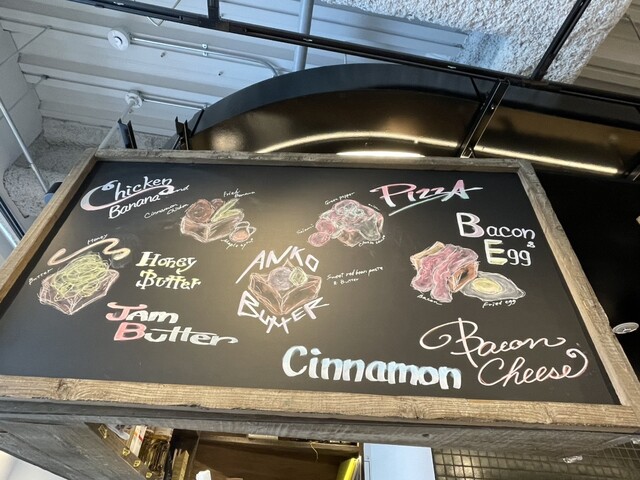 Chicken and
Banana
Cinnamon
Chicken
Fried
Banana
Green pepper
PIZZA
Bacon
&
Egg
Honey
Butter
Honey
Butter
ANKO
BUTTER
Sweet red bean paste
& Butter
Bacon
Fried egg
Jam
Butter
Cinnamon
Bacon
Cheese